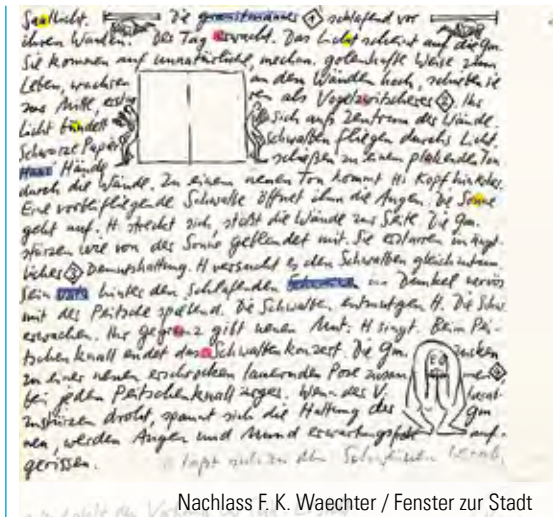 Saallicht. Die 1 schlafend vor
ihren Wänden. Der Tag erwacht. Das Licht scheint auf die Gm.
Sie kommen auf unnatürliche, mechan. golemhafte Weise zum
Leben, wachsen an den Wänden hoch, schieben sie
zur Mitte, als Vogelzwitscherer 2. Ihr
Licht bündelt sich aufs Zentrum der Wände
Schwarze Papier Schwalben fliegen durchs Licht.
Hände schießen zu einem platzenden Ton
durch die Wände. Zu einem neuen Ton kommt Hs Kopf hinterher.
Eine vorbeifliegende Schwalbe öffnet ihm die Augen. Die Sonne
geht auf. H. streckt sich, stößt die Wände zur Seite. Die Gm.
stürzen wie von der Sonne geblendet mit. Sie erstarren in ägypt-
licher 3 Demutshaltung. H versucht es den Schwalben gleichzutun.
Sein hinter den schlafenden im Dunkel nervös
mit der Peitsche spielend. Die Schwalben entmutigen H. Die Schw.
erwachen. Ihr Gegrunz gibt neuen Mut: H singt. Beim Pei-
tschenknall endet das Schwalbenkonzert. Die Gm. zucken
zu einer neuen erschrocken lauernden Pose zusammen 4,
bei jedem Peitschenknall ärger. Wenn der V. herab-
zustürzen droht, spannt sich die Haltung der Gm
nen, werden Augen und Mund auf-
gerissen.
Nachlass F. K. Waechter / Fenster zur Stadt